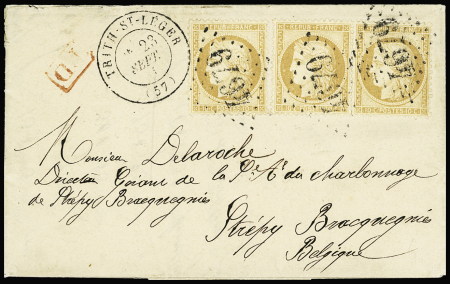 TRITH-ST-LÉGER
23
SEPT
(57)
REPUB. FRANC.
REPUB. FRANC.
REPUB. FRANC.
Monsieur Delaroche
Directeur Gérant de la Sté Ae du Charbonnage
de Strépy Bracquegnies
Strépy Bracquegnies
Belgique